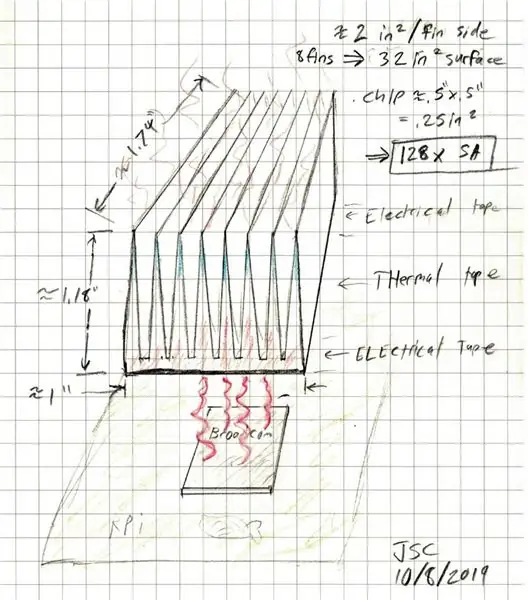 ≈ 2 in²/fin side
8 fins ⇒ 32 in² surface
chip ≈ .5" x .5"
= .25 in²
⇒ 128x SA
≈ 1.74"
← Electrical tape
← THermal tape
≈ 1.18"
← ELEctrical Tape
≈ 1"
Broadcom
RPi
JSC
10/8/2019